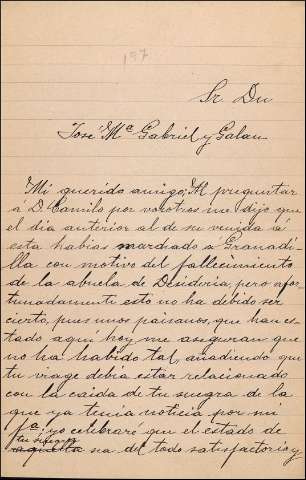 157
Sr. Dn
José Mª Gabriel y Galan
Mi querido amigo; Al preguntar
á D. Camilo por vosotros me dijo que
el dia anterior al de su venida á
esta habias marchado á Granadi-
lla con motivo del fallecimiento
de la abuela de Desideria, pero afor-
tunadamente esto no ha debido ser
cierto, pues unos paisanos, que han es-
tado aquí hoy, me aseguran que
no ha habido tal, añadiendo que
tu viage debia estar relacionado
con la caida de tu suegra de la
que ya tenia noticia por mi
fª; yo celebraré que el estado de
tu suegra
aquella sea del todo satisfactorio y